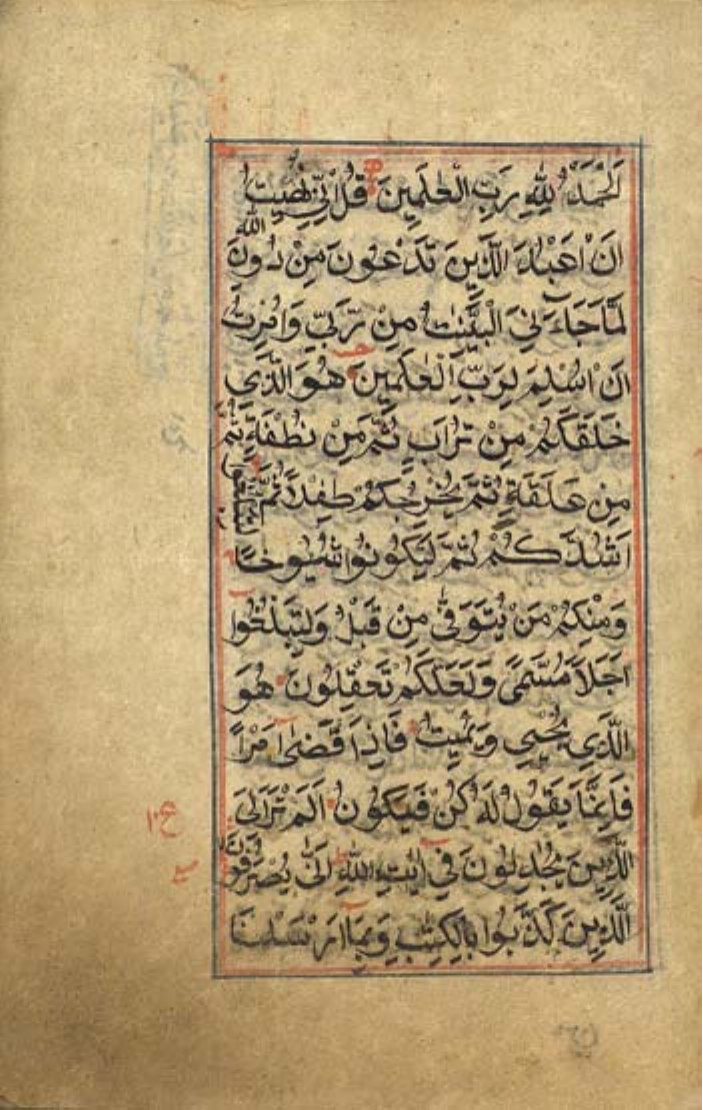 اَلْحَمْدُ لِلّٰهِ رَبِّ الْعٰلَمِينَ قُلْ اِنِّي نُهِيتُ
اَنْ اَعْبُدَ الَّذِينَ تَدْعُونَ مِنْ دُونِ اللّٰهِ
لَمَّا جَاءَنِيَ الْبَيِّنٰتُ مِنْ رَبِّي وَاُمِرْتُ
اَنْ اُسْلِمَ لِرَبِّ الْعٰلَمِينَ هُوَ الَّذِي
خَلَقَكُمْ مِنْ تُرَابٍ ثُمَّ مِنْ نُطْفَةٍ ثُمَّ
مِنْ عَلَقَةٍ ثُمَّ يُخْرِجُكُمْ طِفْلًا ثُمَّ لِتَبْلُغُوا
اَشُدَّكُمْ ثُمَّ لِتَكُونُوا شُيُوخًا
وَمِنْكُمْ مَنْ يُتَوَفّٰى مِنْ قَبْلُ وَلِتَبْلُغُوا
اَجَلًا مُسَمًّى وَلَعَلَّكُمْ تَعْقِلُونَ هُوَ
الَّذِي يُحْيِي وَيُمِيتُ فَاِذَا قَضٰى اَمْرًا
فَاِنَّمَا يَقُولُ لَهُ كُنْ فَيَكُونُ اَلَمْ تَرَ اِلَى
الَّذِينَ يُجَادِلُونَ فِي اٰيٰتِ اللّٰهِ اَنّٰى يُصْرَفُونَ
الَّذِينَ كَذَّبُوا بِالْكِتٰبِ وَبِمَا اَرْسَلْنَا